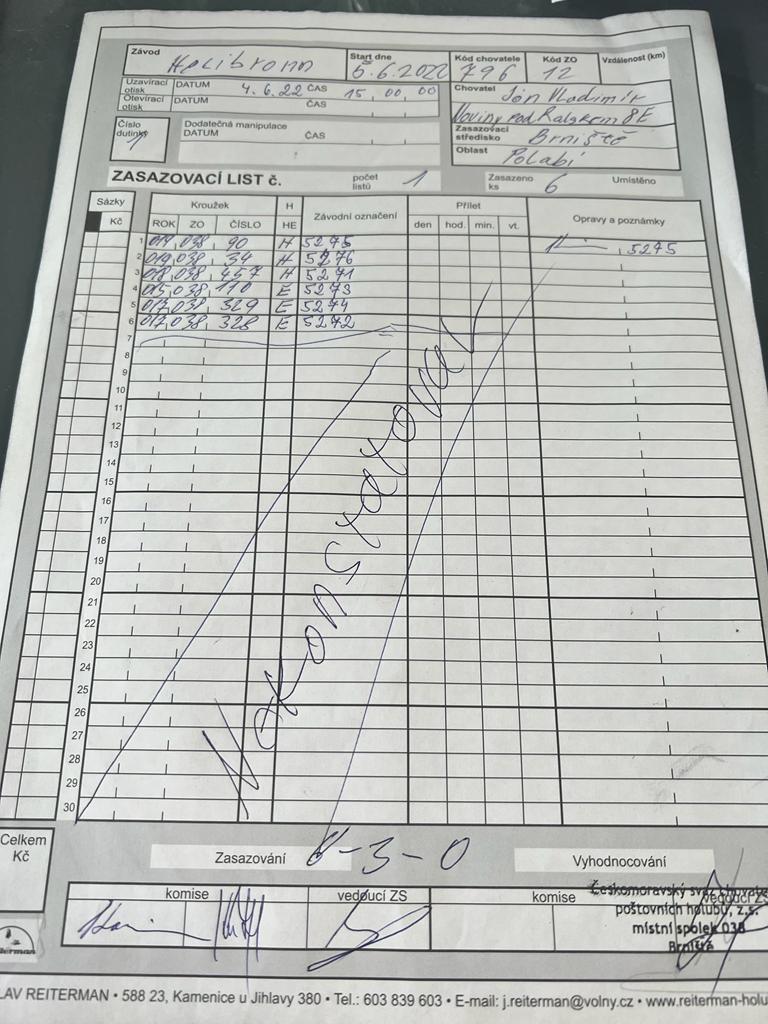 Závod Heilbronn Start dne 5.6.2022 Kód chovatele 796 Kód ZO 12 Vzdálenost (km)
Uzavírací otisk DATUM 4.6.22 ČAS 15,00,00
Otevírací otisk DATUM ČAS
Chovatel Ján Vladimír
Noviny pod Ralskem 8E
Číslo dutinky 1 Dodatečná manipulace
DATUM ČAS
Zasazovací středisko Brniště
Oblast Polabí
ZASAZOVACÍ LIST č. počet listů 1 Zasazeno ks 6 Umístěno
Sázky Kroužek H Závodní označení Přílet Opravy a poznámky
Kč ROK ZO ČÍSLO HE den hod. min. vt.
1 019,038, 90 H 5275 , 5275
2 019,038, 34 H 5276
3 018,038, 457 H 5271
4 015,038, 110 E 5273
5 017,038, 329 E 5274
6 017,038, 328 E 5272
7
8
9
10
11
12
13
14
15
16
17
18
19
20
21
22
23
24
25
26
27
28
29
30
Celkem Kč
Zasazování 6-3-0 Vyhodnocování
komise vedoucí ZS komise vedoucí ZS
Českomoravský svaz chovatelů
poštovních holubů, z.s.
místní spolek 038
Brniště
LAV REITERMAN • 588 23, Kamenice u Jihlavy 380 • Tel.: 603 839 603 • E-mail: j.reiterman@volny.cz • www.reiterman-holu